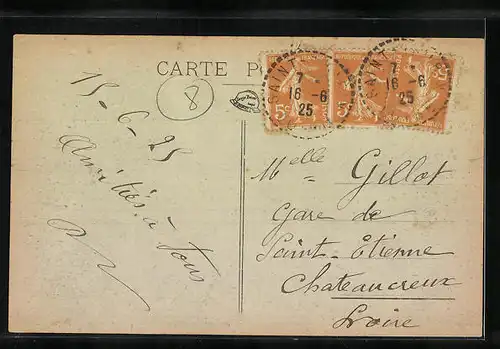 CARTE
8
15-6-25
Amitiés à Tous
SAINT
7 -
16 -6
25
SAINT
7 -
16 -6
25
5c
5c
5c
Melle Gillot
Gare de
Saint-Etienne
Chateaucreux
Loire